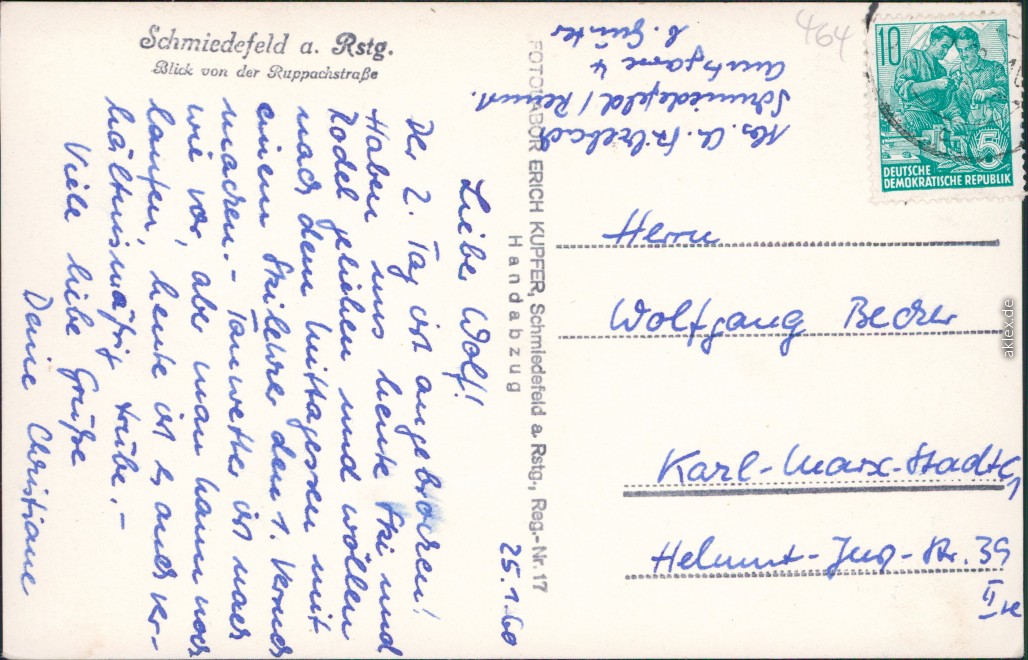 Schmiedefeld a. Rstg.
Blick von der Ruppachstraße
25.1.60
Lieber Wolf!
Der 2. Tag ist angebrochen!
Haben uns heute Ski und
Rodel geliehen und wollen
nach dem Mittagessen mit
einem Skilehrer den 1. Versuch
machen. - Tauwetter ist nach
wie vor, aber man kann noch
laufen, heute ist es auch ver-
hältnismäßig trübe. -
Viele liebe Grüße
Deine Christiane
FOTOLABOR ERICH KUPFER, Schmiedefeld a. Rstg., Reg.-Nr. 17
Handabzug
Abs. C.
Schmiedefeld / Rennst.
4
b. Günter
464
10
5
DEUTSCHE
DEMOKRATISCHE REPUBLIK
Herrn
Wolfgang Becker
Karl-Marx-Stadt
Helmut-Just-Str. 39
II re
aklex.de